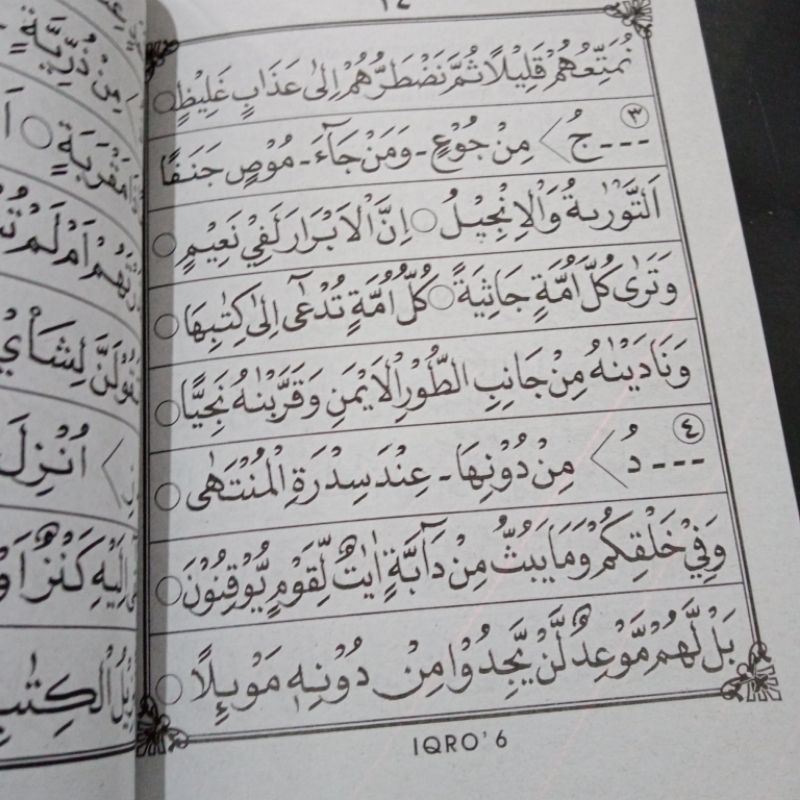 ١٤
نُمَتِّعُهُمْ قَلِيْلًا ثُمَّ نَضْطَرُّهُمْ اِلٰى عَذَابٍ غَلِيْظٍ ○
٣ --- جُ > مِنْ جُوْعٍ - وَمَنْ جَآءَ - مُوْصٍ جَنَفًا
اَلتَّوْرٰىةُ وَالْاِنْجِيْلُ ○ اِنَّ الْاَبْرَارَ لَفِيْ نَعِيْمٍ ○
وَتَرٰى كُلَّ اُمَّةٍ جَاثِيَةً ○ كُلُّ اُمَّةٍ تُدْعٰٓى اِلٰى كِتٰبِهَا ○
وَنَادَيْنٰهُ مِنْ جَانِبِ الطُّوْرِ الْاَيْمَنِ وَقَرَّبْنٰهُ نَجِيًّا ○
٤ --- دُ > مِنْ دُوْنِهَا - عِنْدَ سِدْرَةِ الْمُنْتَهٰى ○
وَفِيْ خَلْقِكُمْ وَمَا يَبُثُّ مِنْ دَآبَّةٍ اٰيٰتٌ لِّقَوْمٍ يُّوْقِنُوْنَ ○
بَلْ لَّهُمْ مَّوْعِدٌ لَّنْ يَّجِدُوْا مِنْ دُوْنِهٖ مَوْئِلًا ○
IQRO' 6